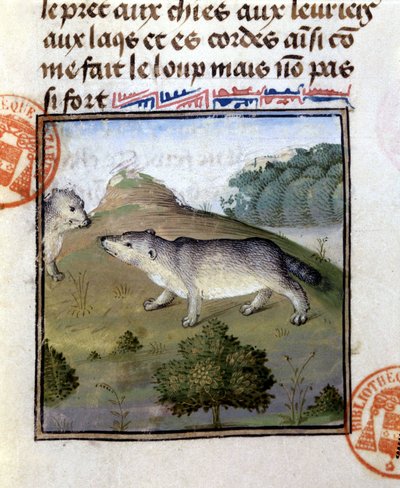 le pret aux chiēs aux leuriers
aux laqs et es cordes aīsi cō
me fait le loup mais nō pas
si fort
BIBLIOTHE